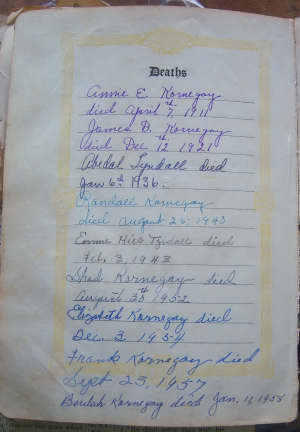 Deaths
Annie E. Kornegay
died April 7th, 1911
James D. Kornegay
died Dec 12th 1921
Abedal Tyndall died
Jan 6th 1936.
Randall Kornegay
died August 26, 1943
Emma Hill Tyndall died
Feb. 3, 1943
Shad Kornegay died
August 30th 1952
Elizabeth Kornegay died
Dec. 3, 1954
Frank Kornegay died
Sept 25, 1957
Beulah Kornegay died Jan. 1958